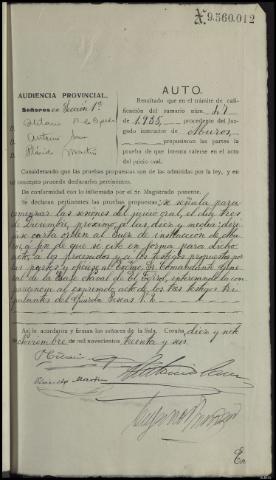 9.560.012
AUDIENCIA PROVINCIAL.
Señores de Sección 1ª
Antonio
Plácido Martín
AUTO.
Resultado que en el trámite de cali-
ficación del sumario núm. 47
de 1.935, procedente del Juz-
gado instructor de Muros,
propusieron las partes la
prueba de que intenta valerse en el acto
del juicio oral.
Considerando que las pruebas propuestas son de las admitidas por la ley, y en
su concepto procede declararlas pertinentes.
De conformidad con lo informado por el Sr. Magistrado ponente.
Se declaran pertinentes las pruebas propuestas; se señala para
comenzar las sesiones del juicio oral, el día tres
de Diciembre próximo, a las diez y media; diríja-
se carta orden al Juez de instrucción de Muros
a fin de que se cite en forma para dicho
acto, a los procesados y a los testigos propuestos por
las partes y ofíciese al Excmo. Sr. Comandante Gene-
ral de la Base Naval de El Ferrol, interesando la com-
parecencia al expresado acto de los tres testigos
Así lo acordaron y firman los señores de la Sala. Coruña, diez y siete
de mil novecientos treinta y seis.
Plácido Martín